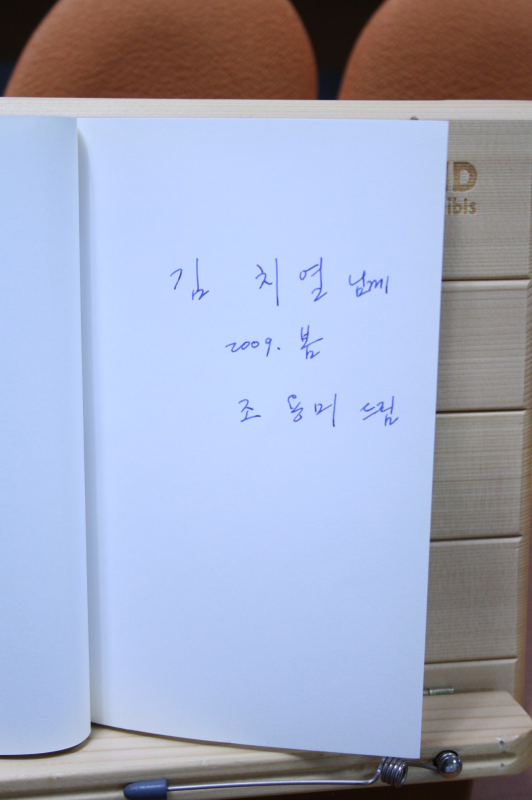 김 치열 님께
2009. 봄
조 용미 드림
ND
ibis